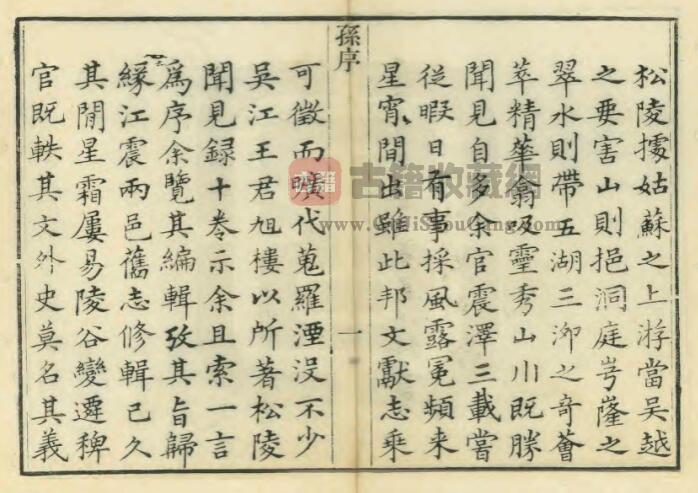 松陵㩀姑蘇之上游當吳越
之要害山則挹洞庭嶐之
翠水則帶五湖三泖之奇薈
萃精華翕吸靈秀山川既勝
聞見自多余官震澤三載嘗
從暇日有事採風露冕頻來
星宵間出雖此邦文獻志乘
孫序
一
可徵而曠代蒐羅湮没不少
吳江王君旭樓以所著松陵
聞見録十卷示余且索一言
爲序余覽其編輯攷其旨歸
緣江震兩邑舊志修輯已久
其閒星霜屢易陵谷變遷稗
官既軼其文外史莫名其義
古籍收藏網
www.GuJiShouCang.com